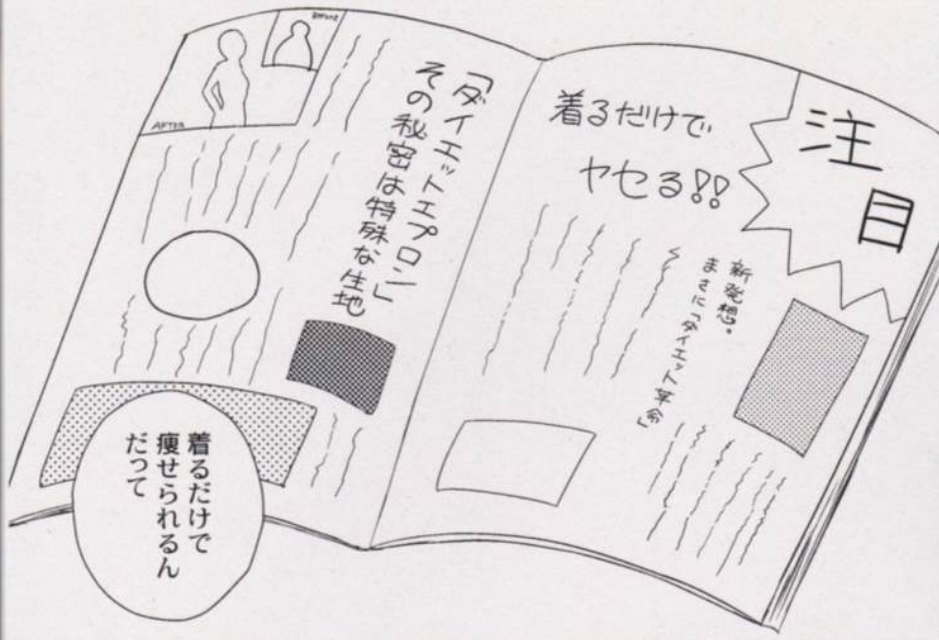 注目
着るだけで
ヤセる!!
新発想。
まさに「ダイエット革命」
「ダイエットエプロン」
その秘密は特殊な生地
BEFORE
AFTER
着るだけで
痩せられるん
だって